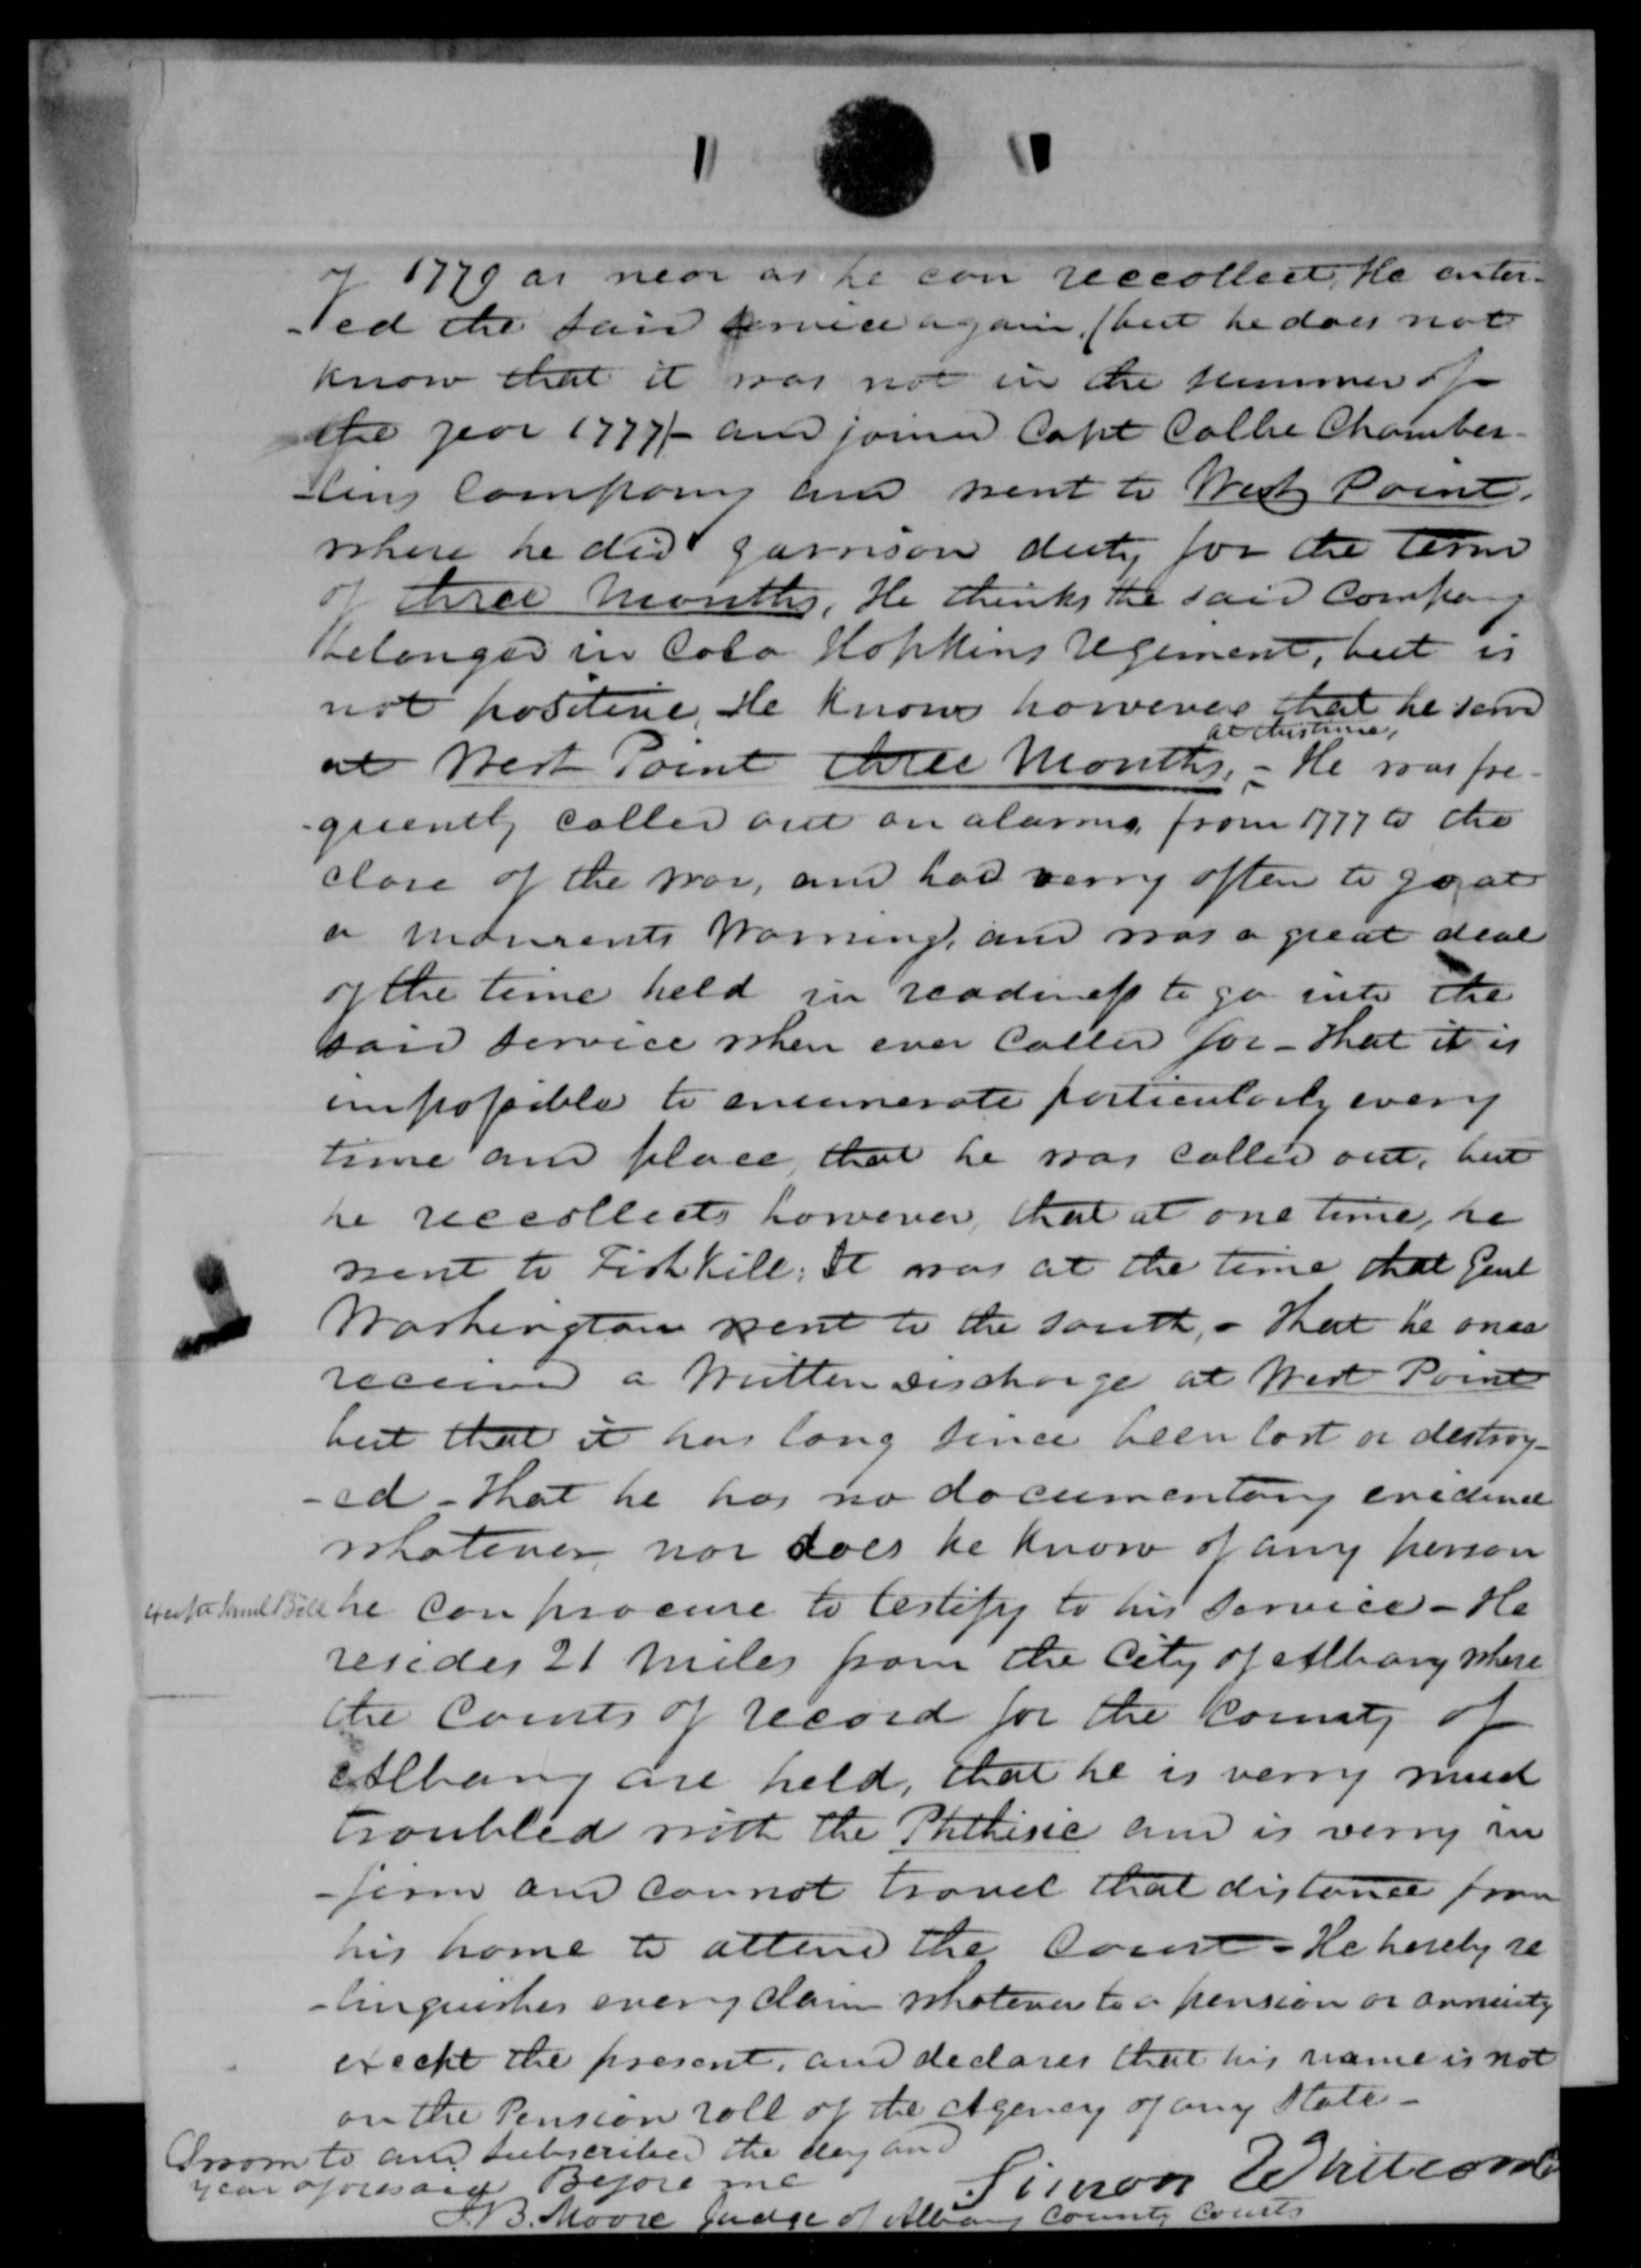 of 1779 as near as he can reccollect, He enter-
-ed the said service again, (but he does not
know that it was not in the summer of
the year 1777)- and joined Capt Colbe Chamber-
-lins Company and went to West Point,
where he did garrison duty for the term
of three Months, He thinks the said Company
belonged in Colo Hopkins Regiment, but is
not positive, He knows however that he served
at this time,
at West Point three Months, - He was fre-
-quently called out on alarms, from 1777 to the
close of the war, and had verry often to go, at
a moments Warning, and was a great deal
of the time held in readiness to go into the
said service when ever Called for - that it is
impossible to enumerate particularly every
time and place, that he was called out, but
he reccollects however, that at one time, he
went to Fishkill; It was at the time that Genl
Washington went to the south, - that he once
received a Written Discharge at West Point
but that it has long since been lost or destroy-
-ed - that he has no documentary evidence
whatever, nor does he know of any person
he can procure to testify to his service - He
except Saml Bell
resides 21 Miles from the City of Albany where
the Courts of record for the County of
Albany are held, that he is verry much
troubled with the Phthisic and is verry in
-firm and cannot travel that distance from
his home to attend the Court - He hereby re
-linquishes every claim whatever to a pension or annuity
except the present, and declares that his name is not
on the Pension roll of the Agency of any State -
Sworn to and subscribed the day and
year aforesaid Before me
Simon Whitcomb
J B. Moore Judge of Albany County Courts